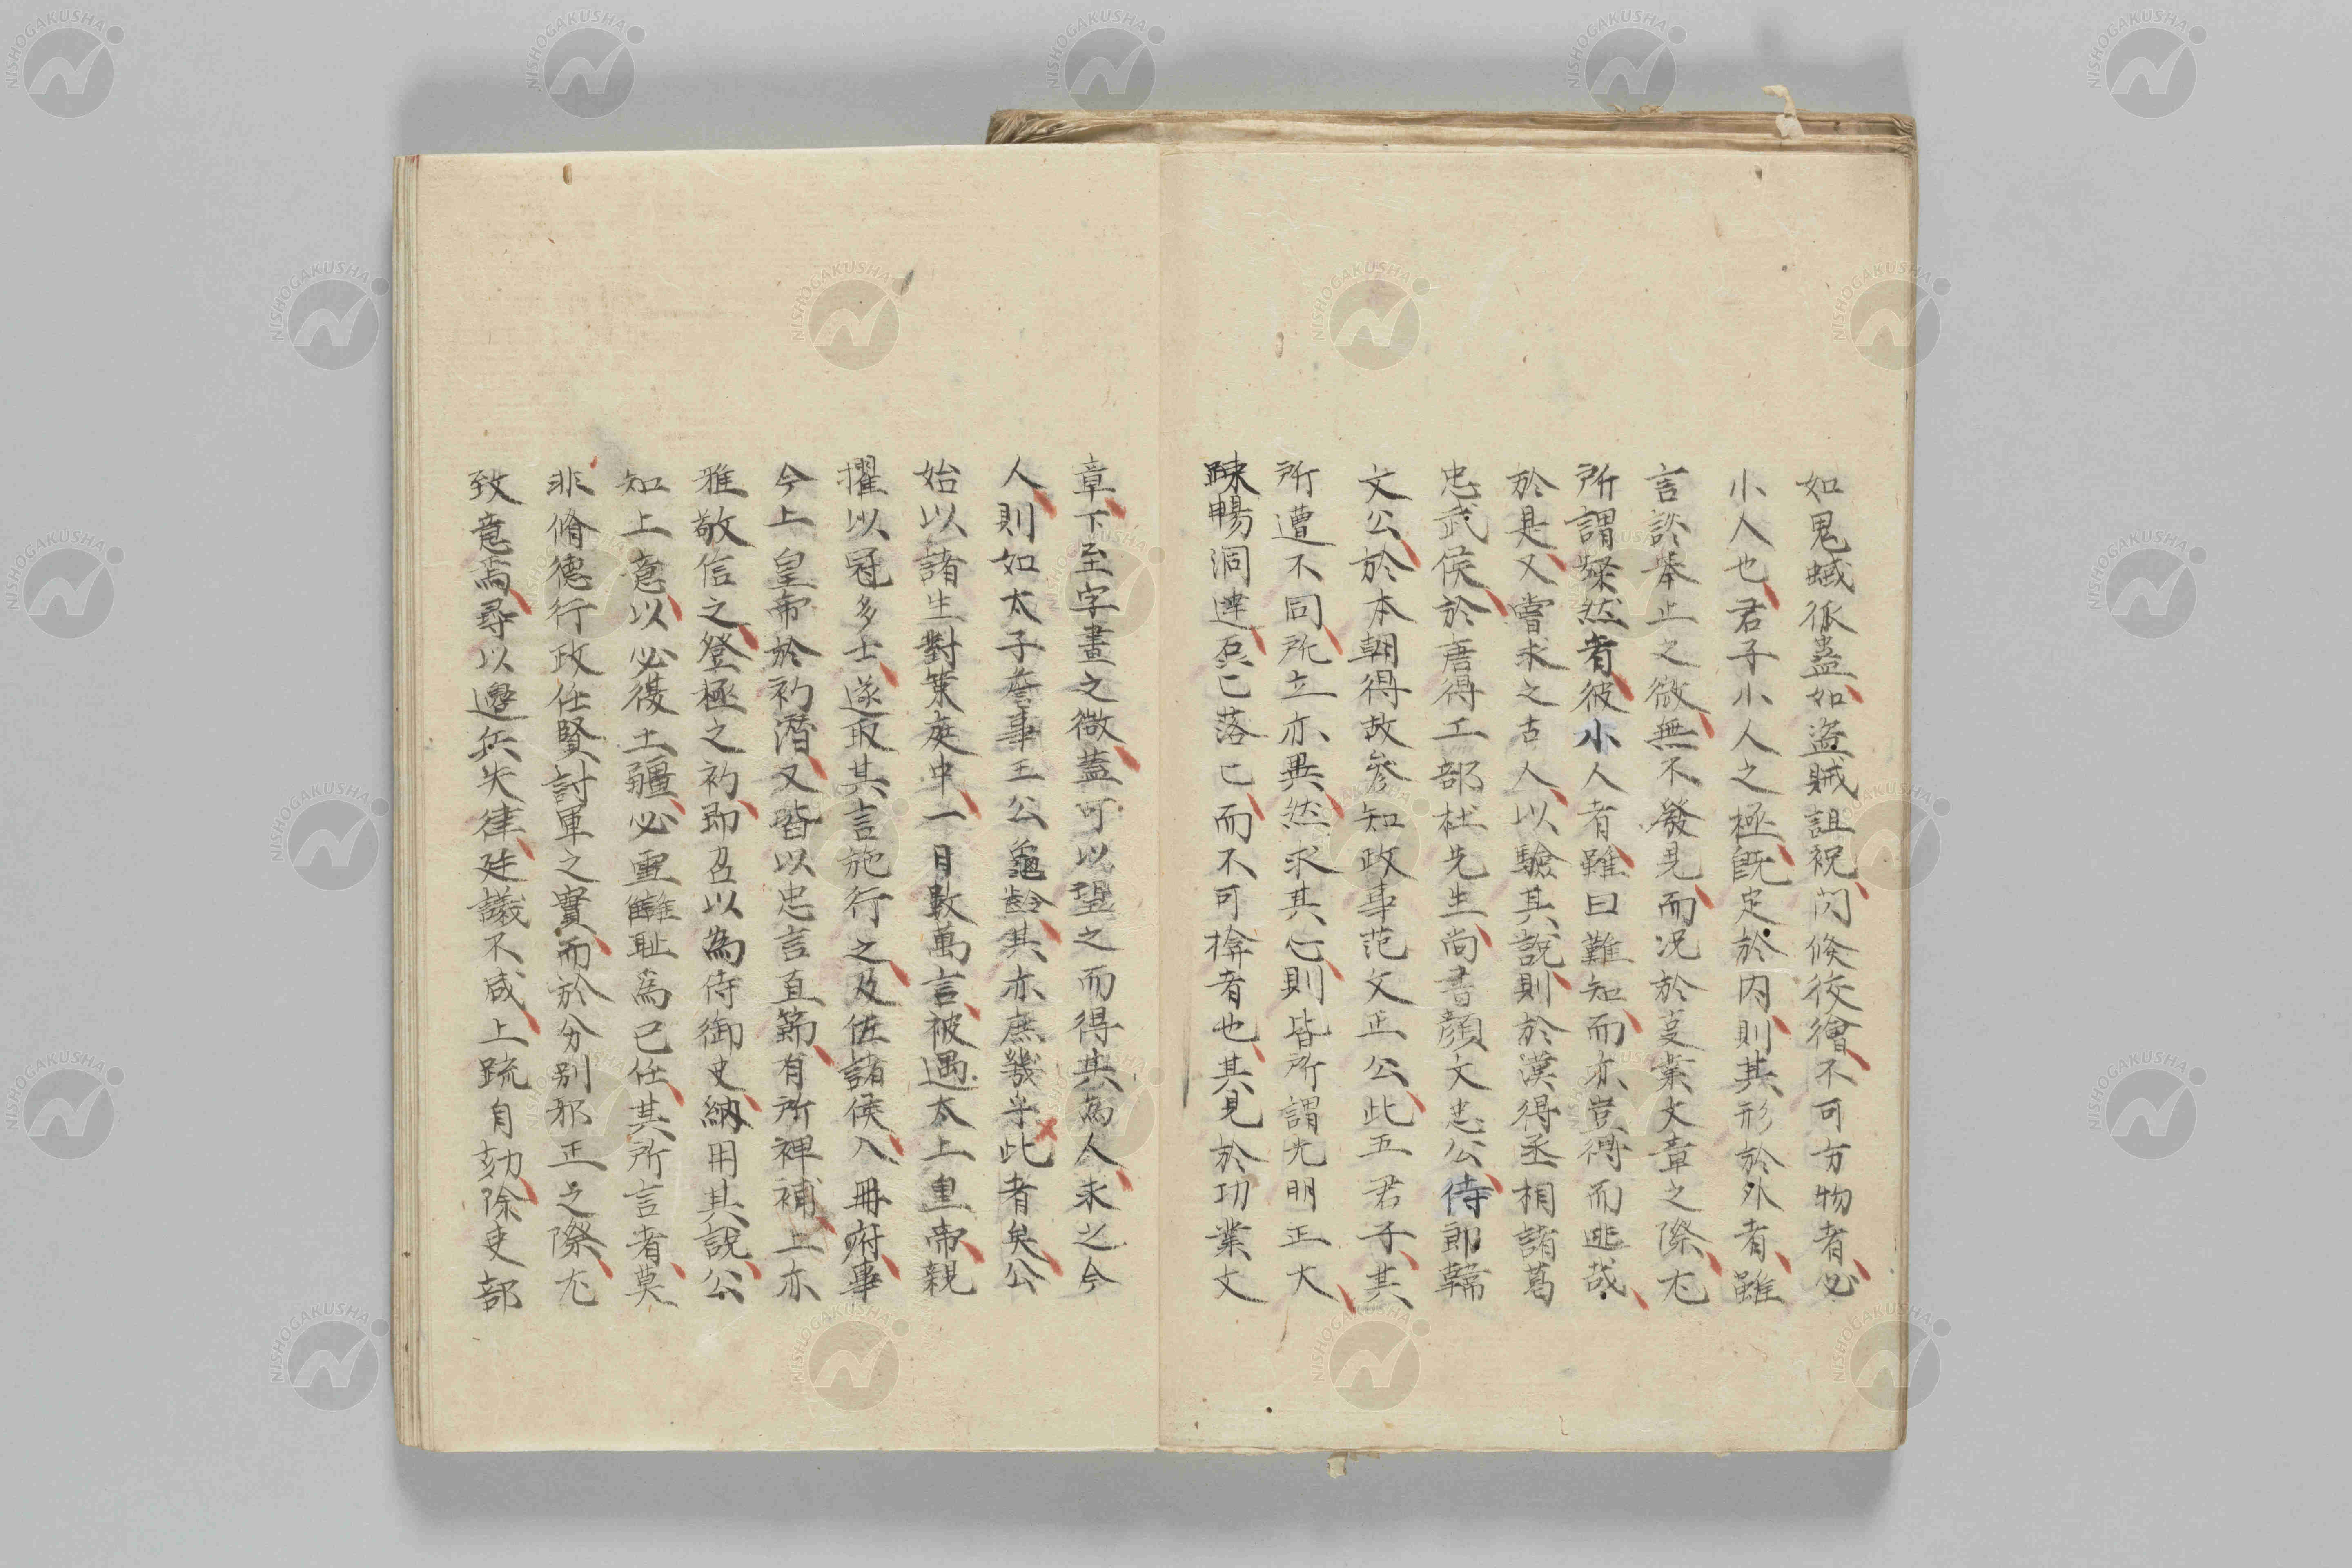 如鬼蜮狐蠱如盗賊詛祝閃倐狡獪不可方物者必
小人也君子小人之極既定於内則其形於外者雖
言談擧止之微無不發見而况於事業文章之際尤
所謂粲然者彼小人者雖曰難知而亦豈得而逃哉
於是又嘗求之古人以驗其説則於漢得丞相諸葛
忠武侯於唐得工部杜先生尚書顔文忠公侍郎韓
文公於本朝得故參知政事范文正公此五君子其
所遭不同所立亦異然求其心則皆所謂光明正大
踈暢洞達磊已落已而不可揜者也其見於功業文
章下至字畫之微蓋可以望之而得其為人求之今
人則如太子詹事王公龜齡其亦庶幾乎此者矣公
始以諸生對策庭中一日數萬言被遇太上皇帝親
擢以冠多士遂取其言施行之及佐諸侯入冊府事
今上皇帝於初潛又皆以忠言直節有所裨補上亦
雅敬信之登極之初即召以為侍御史納用其説公
知上意以必復土疆必雪讎耻為已任其所言者莫
非脩德行政任賢討軍之實而於分别邪正之際尤
致意焉尋以邊兵失律廷議不咸上䟽自劾除吏部
NISHOGAKUSHA